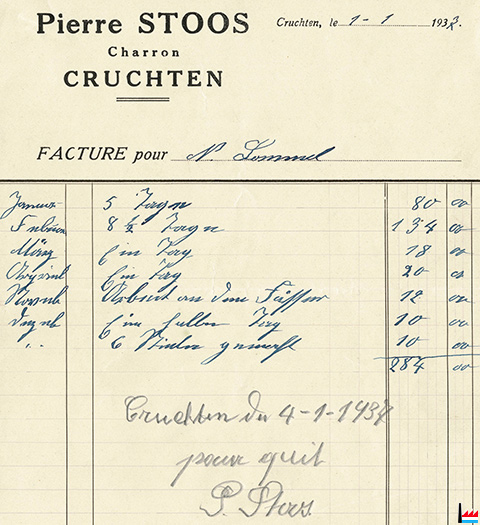 Pierre STOOS
Charron
CRUCHTEN
Cruchten, le 1-1 193
FACTURE pour N. Lommel
Januar 5 Tagn 80 00
Februar 8 ½ Tagn 134 00
März Ein Tag 18 00
Ein Tag 20 00
Novemb Arbeit an dem Fässer 12 00
Dezeb Ein halben Tag 10 00
" 6 gemacht 10 00
284 00
Cruchten du 4-1-1934
pour quit
P. Stoos